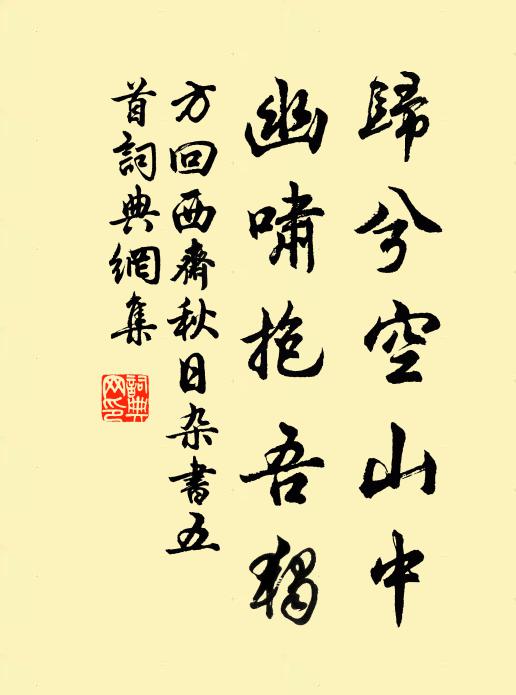 歸兮空山中
幽嘯抱吾獨
方回西齋秋日杂書五
首詞典網集
詞典
网印